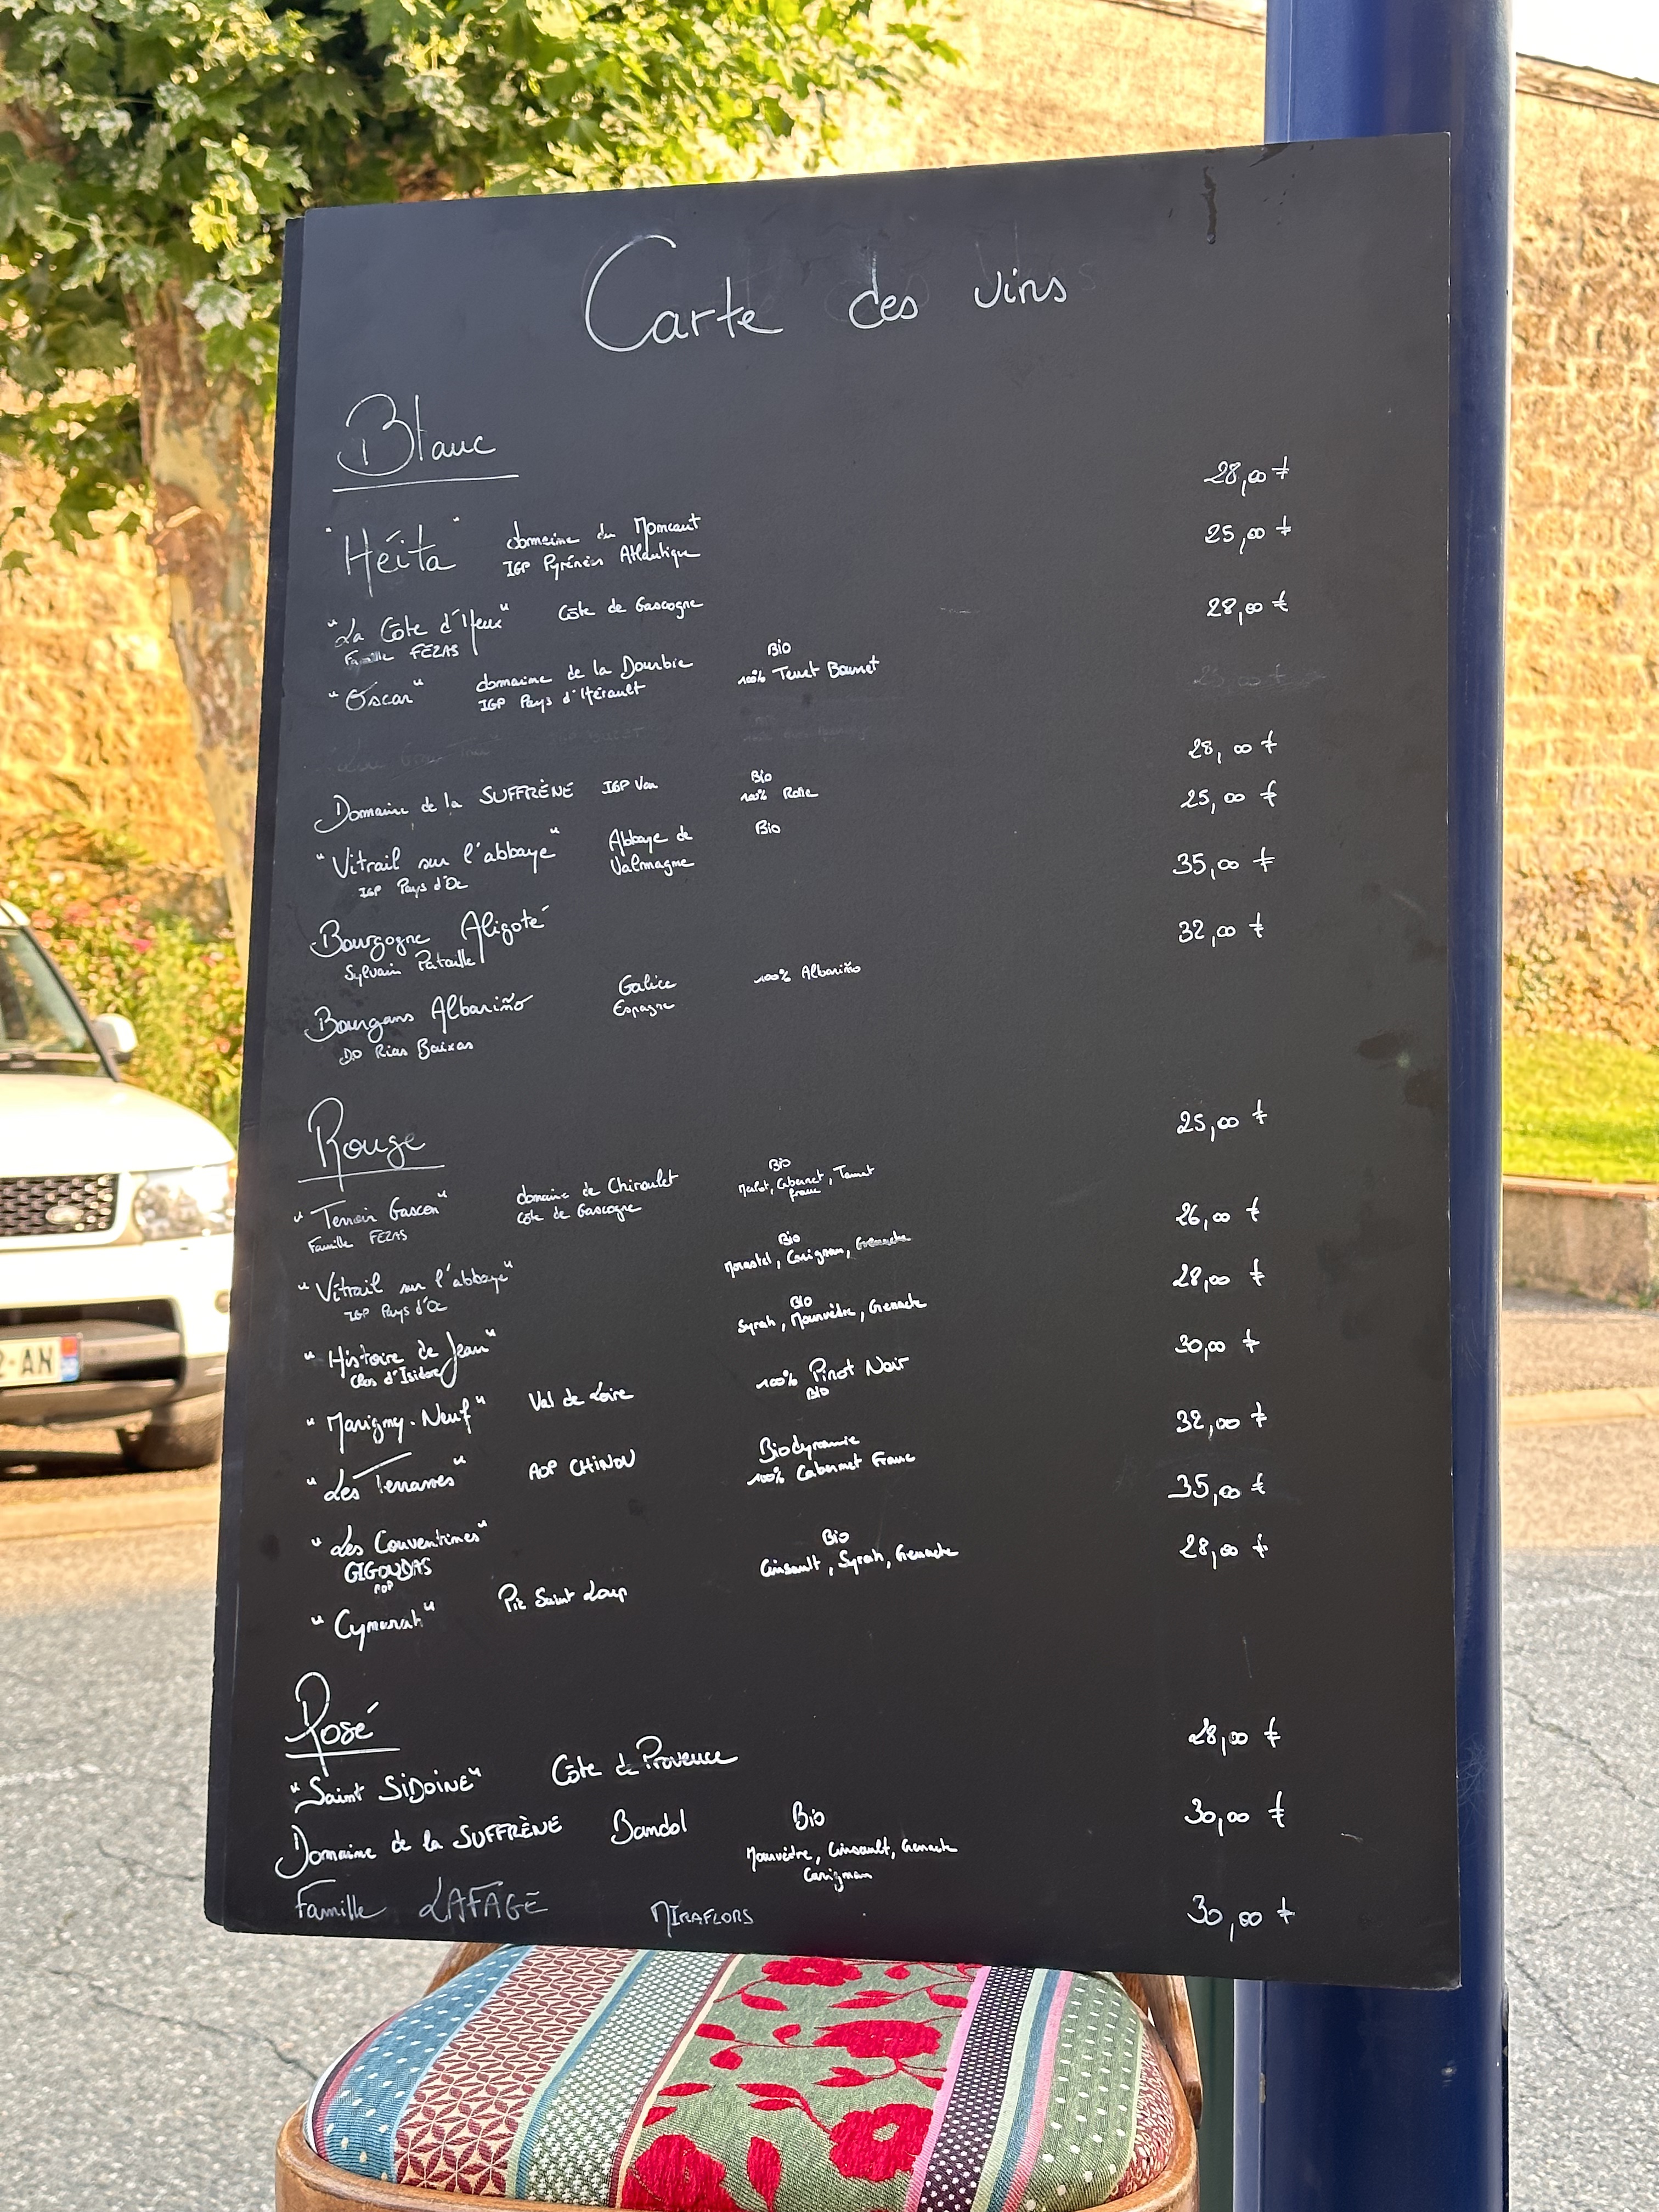 Carte des vins
Blanc
"Héïta" domaine du Moncaut 28,00 €
IGP Pyrénées Atlantique
"La Côte d'Heux" Côte de Gascogne 25,00 €
Famille FEZAS
"Oscar" domaine de la Dourbie Bio 28,00 €
IGP Pays d'Hérault 100% Terret Bourret
Domaine de la SUFFRÈNE IGP Var Bio 28,00 €
100% Rolle
"Vitrail sur l'abbaye" Abbaye de Bio 25,00 €
IGP Pays d'Oc Valmagne
Bourgogne Aligoté 35,00 €
Sylvain Pataille
Bourgans Albariño Galice 100% Albariño 32,00 €
DO Rias Baixas Espagne
Rouge
"Terroir Gascon" domaine de Chiroulet Bio 25,00 €
Famille FEZAS Côte de Gascogne Merlot, Cabernet, Tannat
franc
"Vitrail sur l'abbaye" Bio 26,00 €
IGP Pays d'Oc Morastel, Carignan, Grenache
"Histoire de Jean" Bio 28,00 €
Clos d'Isidore Syrah, Mourvèdre, Grenache
"Marigny-Neuf" Val de Loire 100% Pinot Noir 30,00 €
Bio
"Les Terrasses" AOP CHINON Biodynamie 32,00 €
100% Cabernet Franc
"Les Couventines" 35,00 €
GIGONDAS
AOP
"Cymarah" Pic Saint Loup Bio 28,00 €
Cinsault, Syrah, Grenache
Rosé
"Saint SIDOINE" Côte de Provence 28,00 €
Domaine de la SUFFRÈNE Bandol Bio 30,00 €
Mourvèdre, Cinsault, Grenache
Carignan
Famille LAFAGE MIRAFLORS 30,00 €